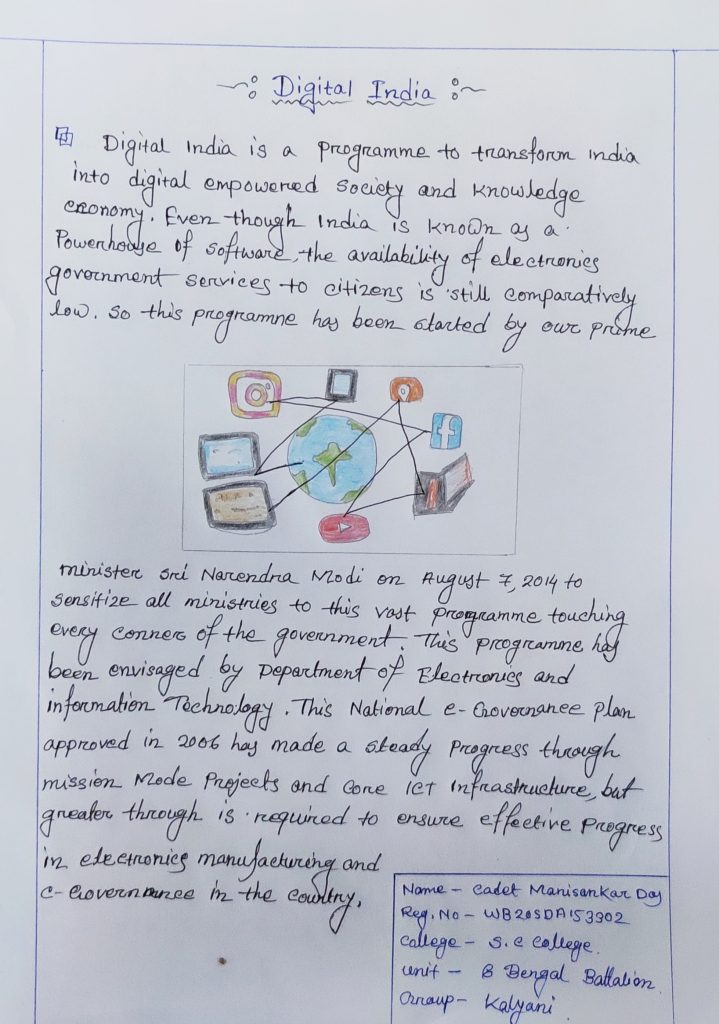 Digital India
Digital India is a programme to transform India
into digital empowered society and knowledge
economy. Even though India is known as a
Powerhouse of software, the availability of electronics
government services to citizens is still comparatively
low. So this programne has been started by our prime
f
minister Sri Narendra Modi on August 7, 2014 to
Sensitize all ministries to this vast programme touching
every conner of the government. This programme has
been envisaged by Department of Electronics and
information Technology. This National e-Governance Plan
approved in 2006 has made a steady Progress through
mission Mode Projects and Core ICT Infrastructure, but
greater through is required to ensure effective Progress
in electronics manufacturing and
e-Governance in the country.
Name - Cadet Manisankar Das
Reg. No - WB20SDA153902
College - S. C College.
Unit - 8 Bengal Battalion.
Group - Kalyani